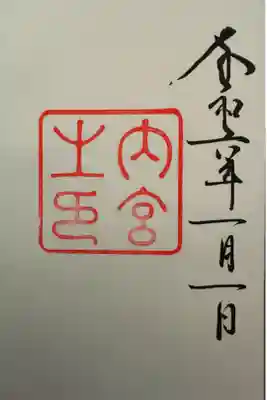 令和二年一月一日
内宮
之印